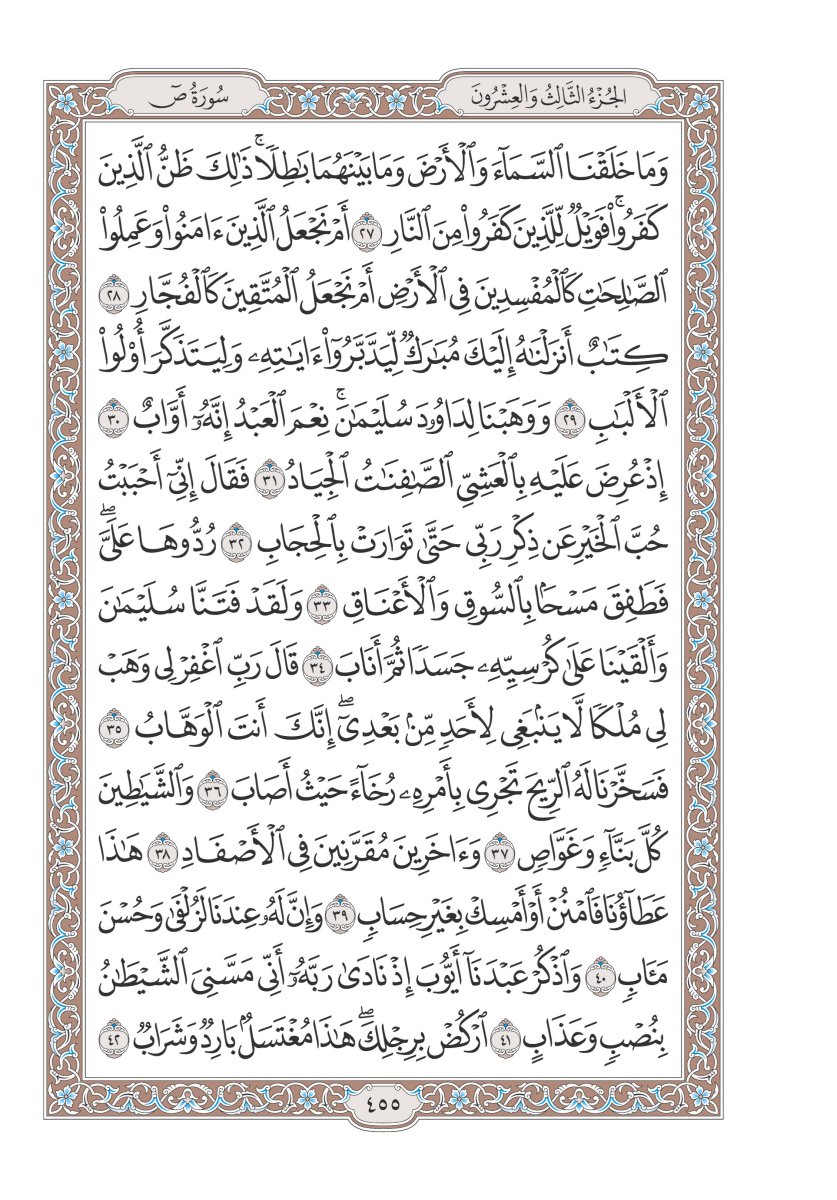 الجُزْءُ الثَّالِثُ وَالعِشْرُونَ
سُورَةُ صٓ
وَمَا خَلَقْنَا ٱلسَّمَآءَ وَٱلْأَرْضَ وَمَا بَيْنَهُمَا بَٰطِلًاۚ ذَٰلِكَ ظَنُّ ٱلَّذِينَ
كَفَرُواْۚ فَوَيْلٌ لِّلَّذِينَ كَفَرُواْ مِنَ ٱلنَّارِ ٢٧ أَمْ نَجْعَلُ ٱلَّذِينَ ءَامَنُواْ وَعَمِلُواْ
ٱلصَّٰلِحَٰتِ كَٱلْمُفْسِدِينَ فِي ٱلْأَرْضِ أَمْ نَجْعَلُ ٱلْمُتَّقِينَ كَٱلْفُجَّارِ ٢٨
كِتَٰبٌ أَنزَلْنَٰهُ إِلَيْكَ مُبَٰرَكٌ لِّيَدَّبَّرُوٓاْ ءَايَٰتِهِۦ وَلِيَتَذَكَّرَ أُوْلُواْ
ٱلْأَلْبَٰبِ ٢٩ وَوَهَبْنَا لِدَاوُۥدَ سُلَيْمَٰنَۚ نِعْمَ ٱلْعَبْدُ إِنَّهُۥٓ أَوَّابٌ ٣٠
إِذْ عُرِضَ عَلَيْهِ بِٱلْعَشِيِّ ٱلصَّٰفِنَٰتُ ٱلْجِيَادُ ٣١ فَقَالَ إِنِّيٓ أَحْبَبْتُ
حُبَّ ٱلْخَيْرِ عَن ذِكْرِ رَبِّي حَتَّىٰ تَوَارَتْ بِٱلْحِجَابِ ٣٢ رُدُّوهَا عَلَيَّۖ
فَطَفِقَ مَسْحَۢا بِٱلسُّوقِ وَٱلْأَعْنَاقِ ٣٣ وَلَقَدْ فَتَنَّا سُلَيْمَٰنَ
وَأَلْقَيْنَا عَلَىٰ كُرْسِيِّهِۦ جَسَدًا ثُمَّ أَنَابَ ٣٤ قَالَ رَبِّ ٱغْفِرْ لِي وَهَبْ
لِي مُلْكًا لَّا يَنۢبَغِي لِأَحَدٍ مِّنۢ بَعْدِيٓۖ إِنَّكَ أَنتَ ٱلْوَهَّابُ ٣٥
فَسَخَّرْنَا لَهُ ٱلرِّيحَ تَجْرِي بِأَمْرِهِۦ رُخَآءً حَيْثُ أَصَابَ ٣٦ وَٱلشَّيَٰطِينَ
كُلَّ بَنَّآءٍ وَغَوَّاصٍ ٣٧ وَءَاخَرِينَ مُقَرَّنِينَ فِي ٱلْأَصْفَادِ ٣٨ هَٰذَا
عَطَآؤُنَا فَٱمْنُنْ أَوْ أَمْسِكْ بِغَيْرِ حِسَابٍ ٣٩ وَإِنَّ لَهُۥ عِندَنَا لَزُلْفَىٰ وَحُسْنَ
مَـَٔابٍ ٤٠ وَٱذْكُرْ عَبْدَنَآ أَيُّوبَ إِذْ نَادَىٰ رَبَّهُۥٓ أَنِّي مَسَّنِيَ ٱلشَّيْطَٰنُ
بِنُصْبٍ وَعَذَابٍ ٤١ ٱرْكُضْ بِرِجْلِكَۖ هَٰذَا مُغْتَسَلُۢ بَارِدٌ وَشَرَابٌ ٤٢
٤٥٥